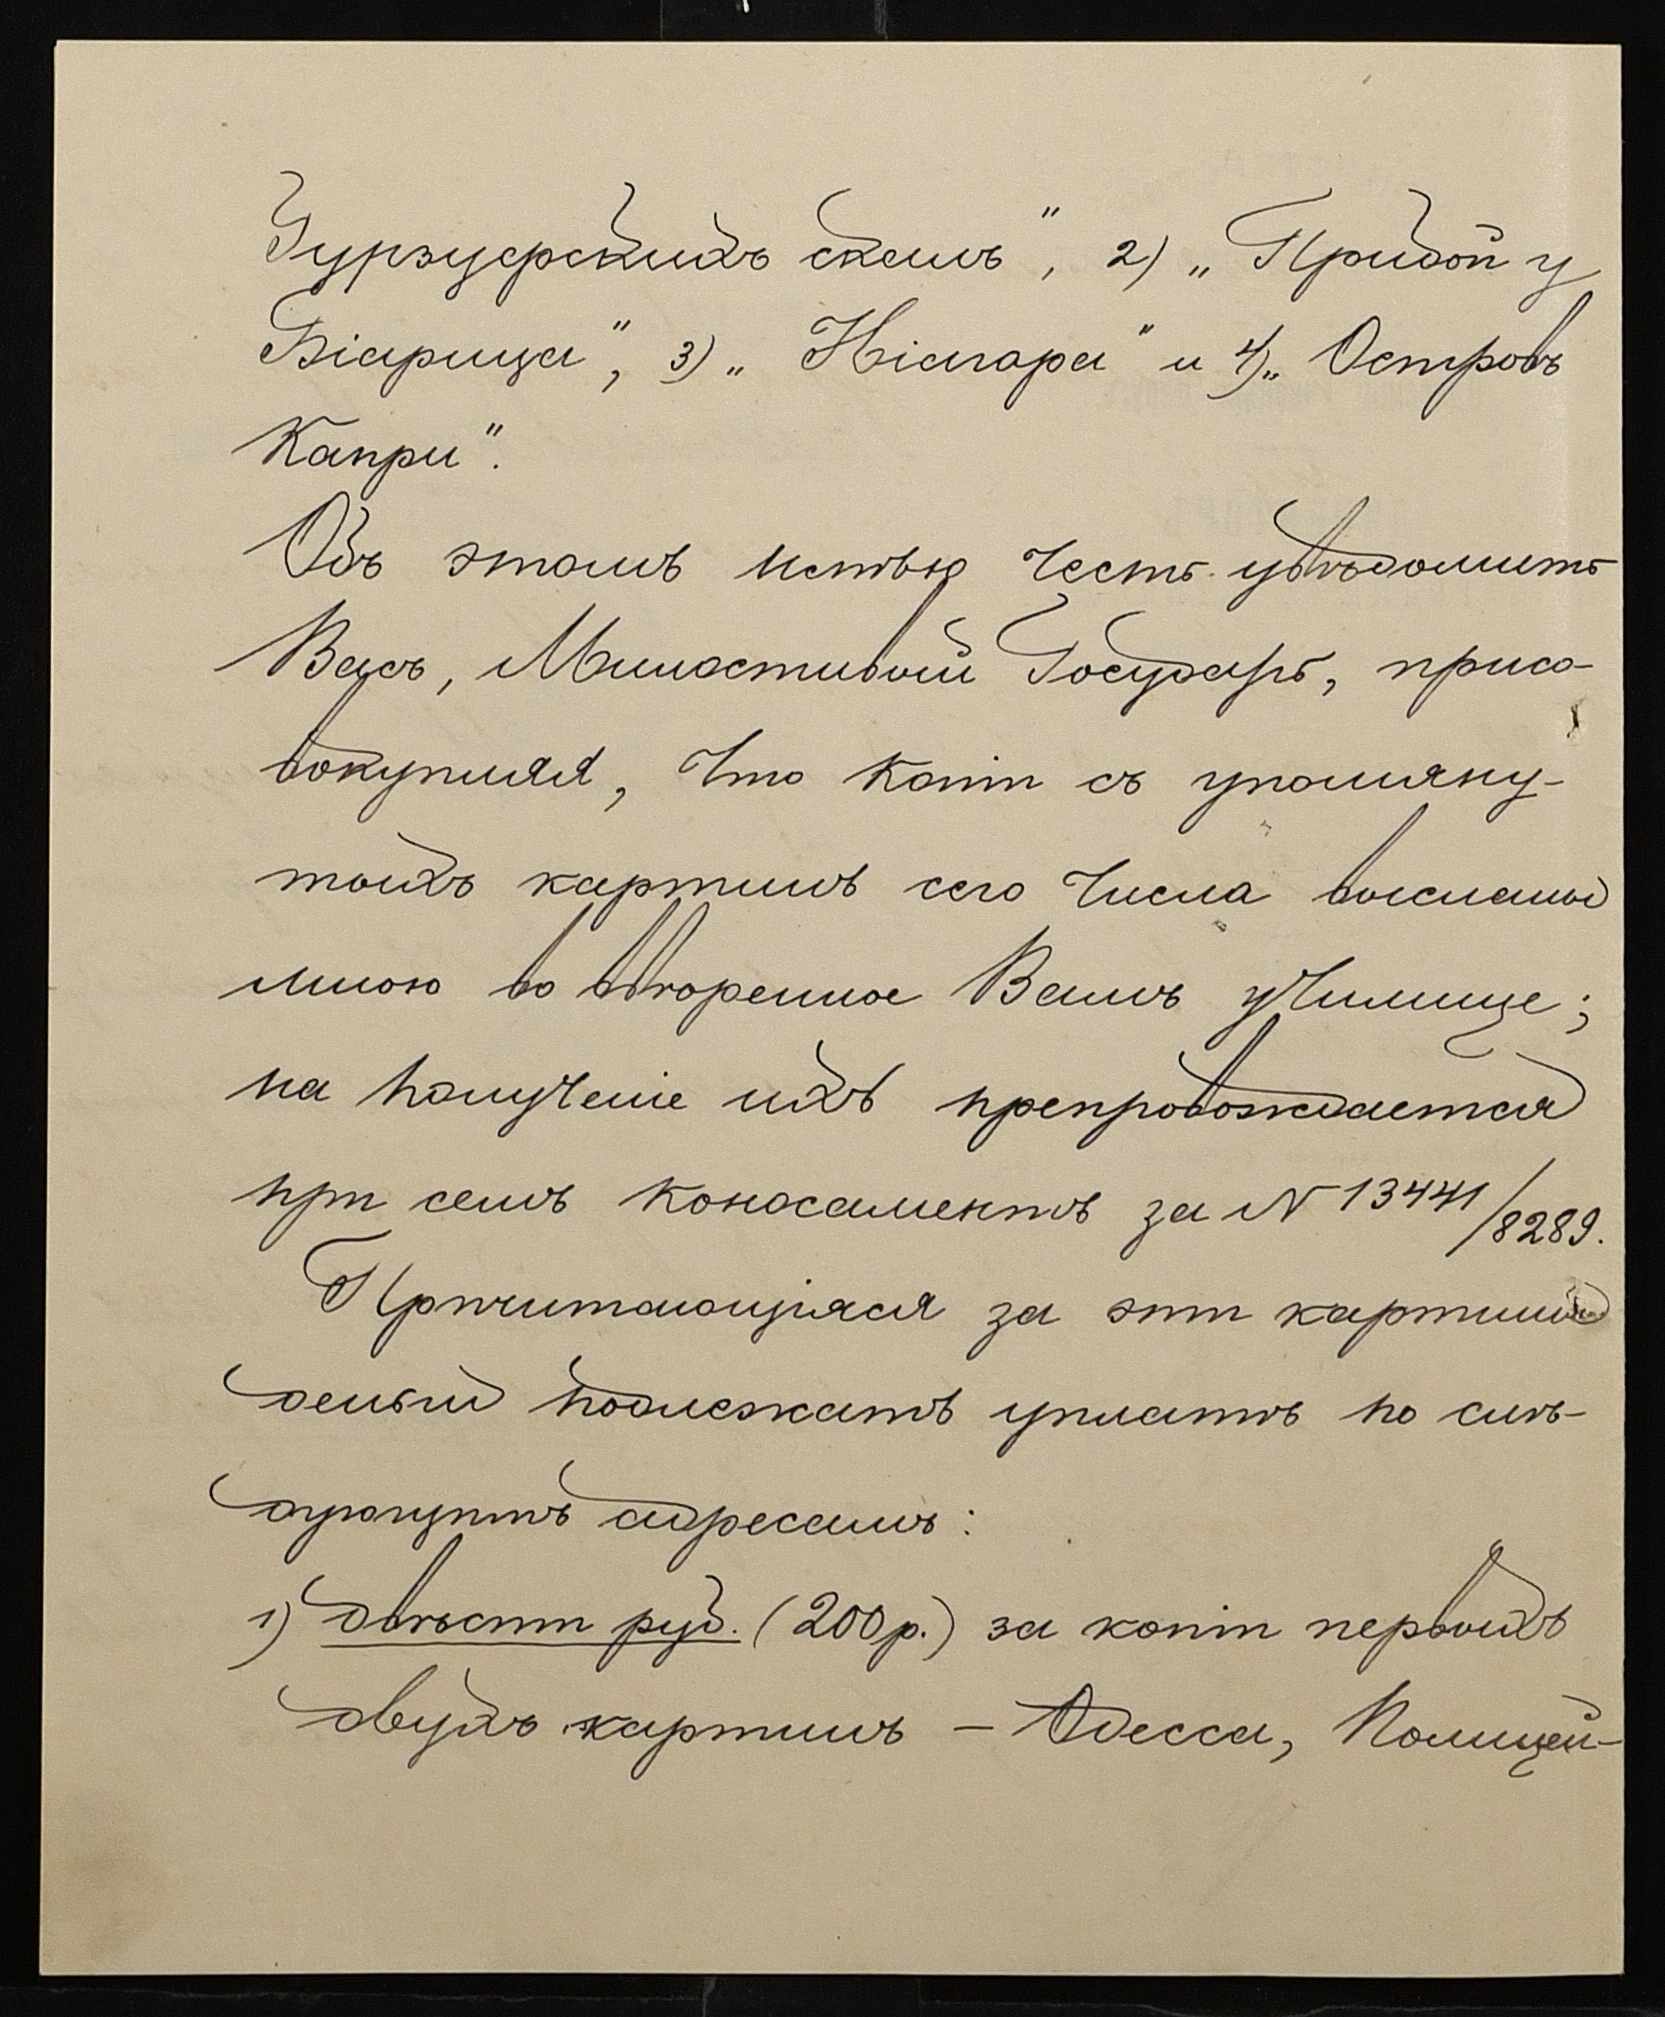 Гурзуфскихъ скалъ", 2) „Прибой у
Біарица", 3) „Ніагара" и 4) „Островъ
Капри".
Объ этомъ имѣю честь увѣдомить
Васъ, Милостивый Государь, присо-
вокупляя, что копіи съ упомяну-
тыхъ картинъ сего числа высланы
мною во ввѣренное Вамъ училище;
на полученіе ихъ препровождается
при семъ коносаментъ за № 13441/8289.
Причитающіяся за эти картины
деньги подлежатъ уплатѣ по слѣ-
дующимъ адресамъ:
1) двѣсти руб. (200 р.) за копіи первыхъ
двухъ картинъ – Одесса, Полицей-